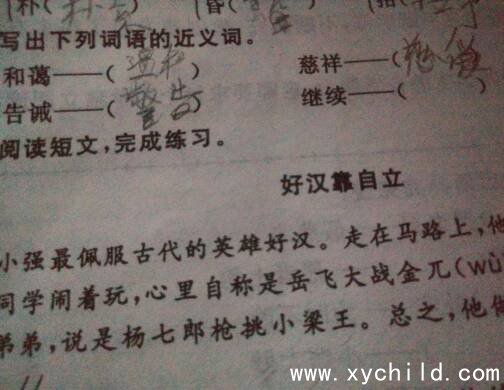 [朴(朴 [昏( [拍(
写出下列词语的近义词。
和蔼——(温和) 慈祥——(慈爱
告诫——(警告) 继续——(
阅读短文,完成练习。
好汉靠自立
小强最佩服古代的英雄好汉。走在马路上,他
同学闹着玩,心里自称是岳飞大战金兀(wù
弟弟,说是杨七郎枪挑小梁王。总之,他
www.xychild.com